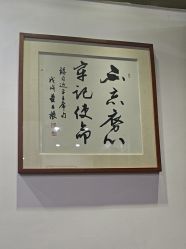 不忘初心
牢记使命
录习近平主席句
戊戌